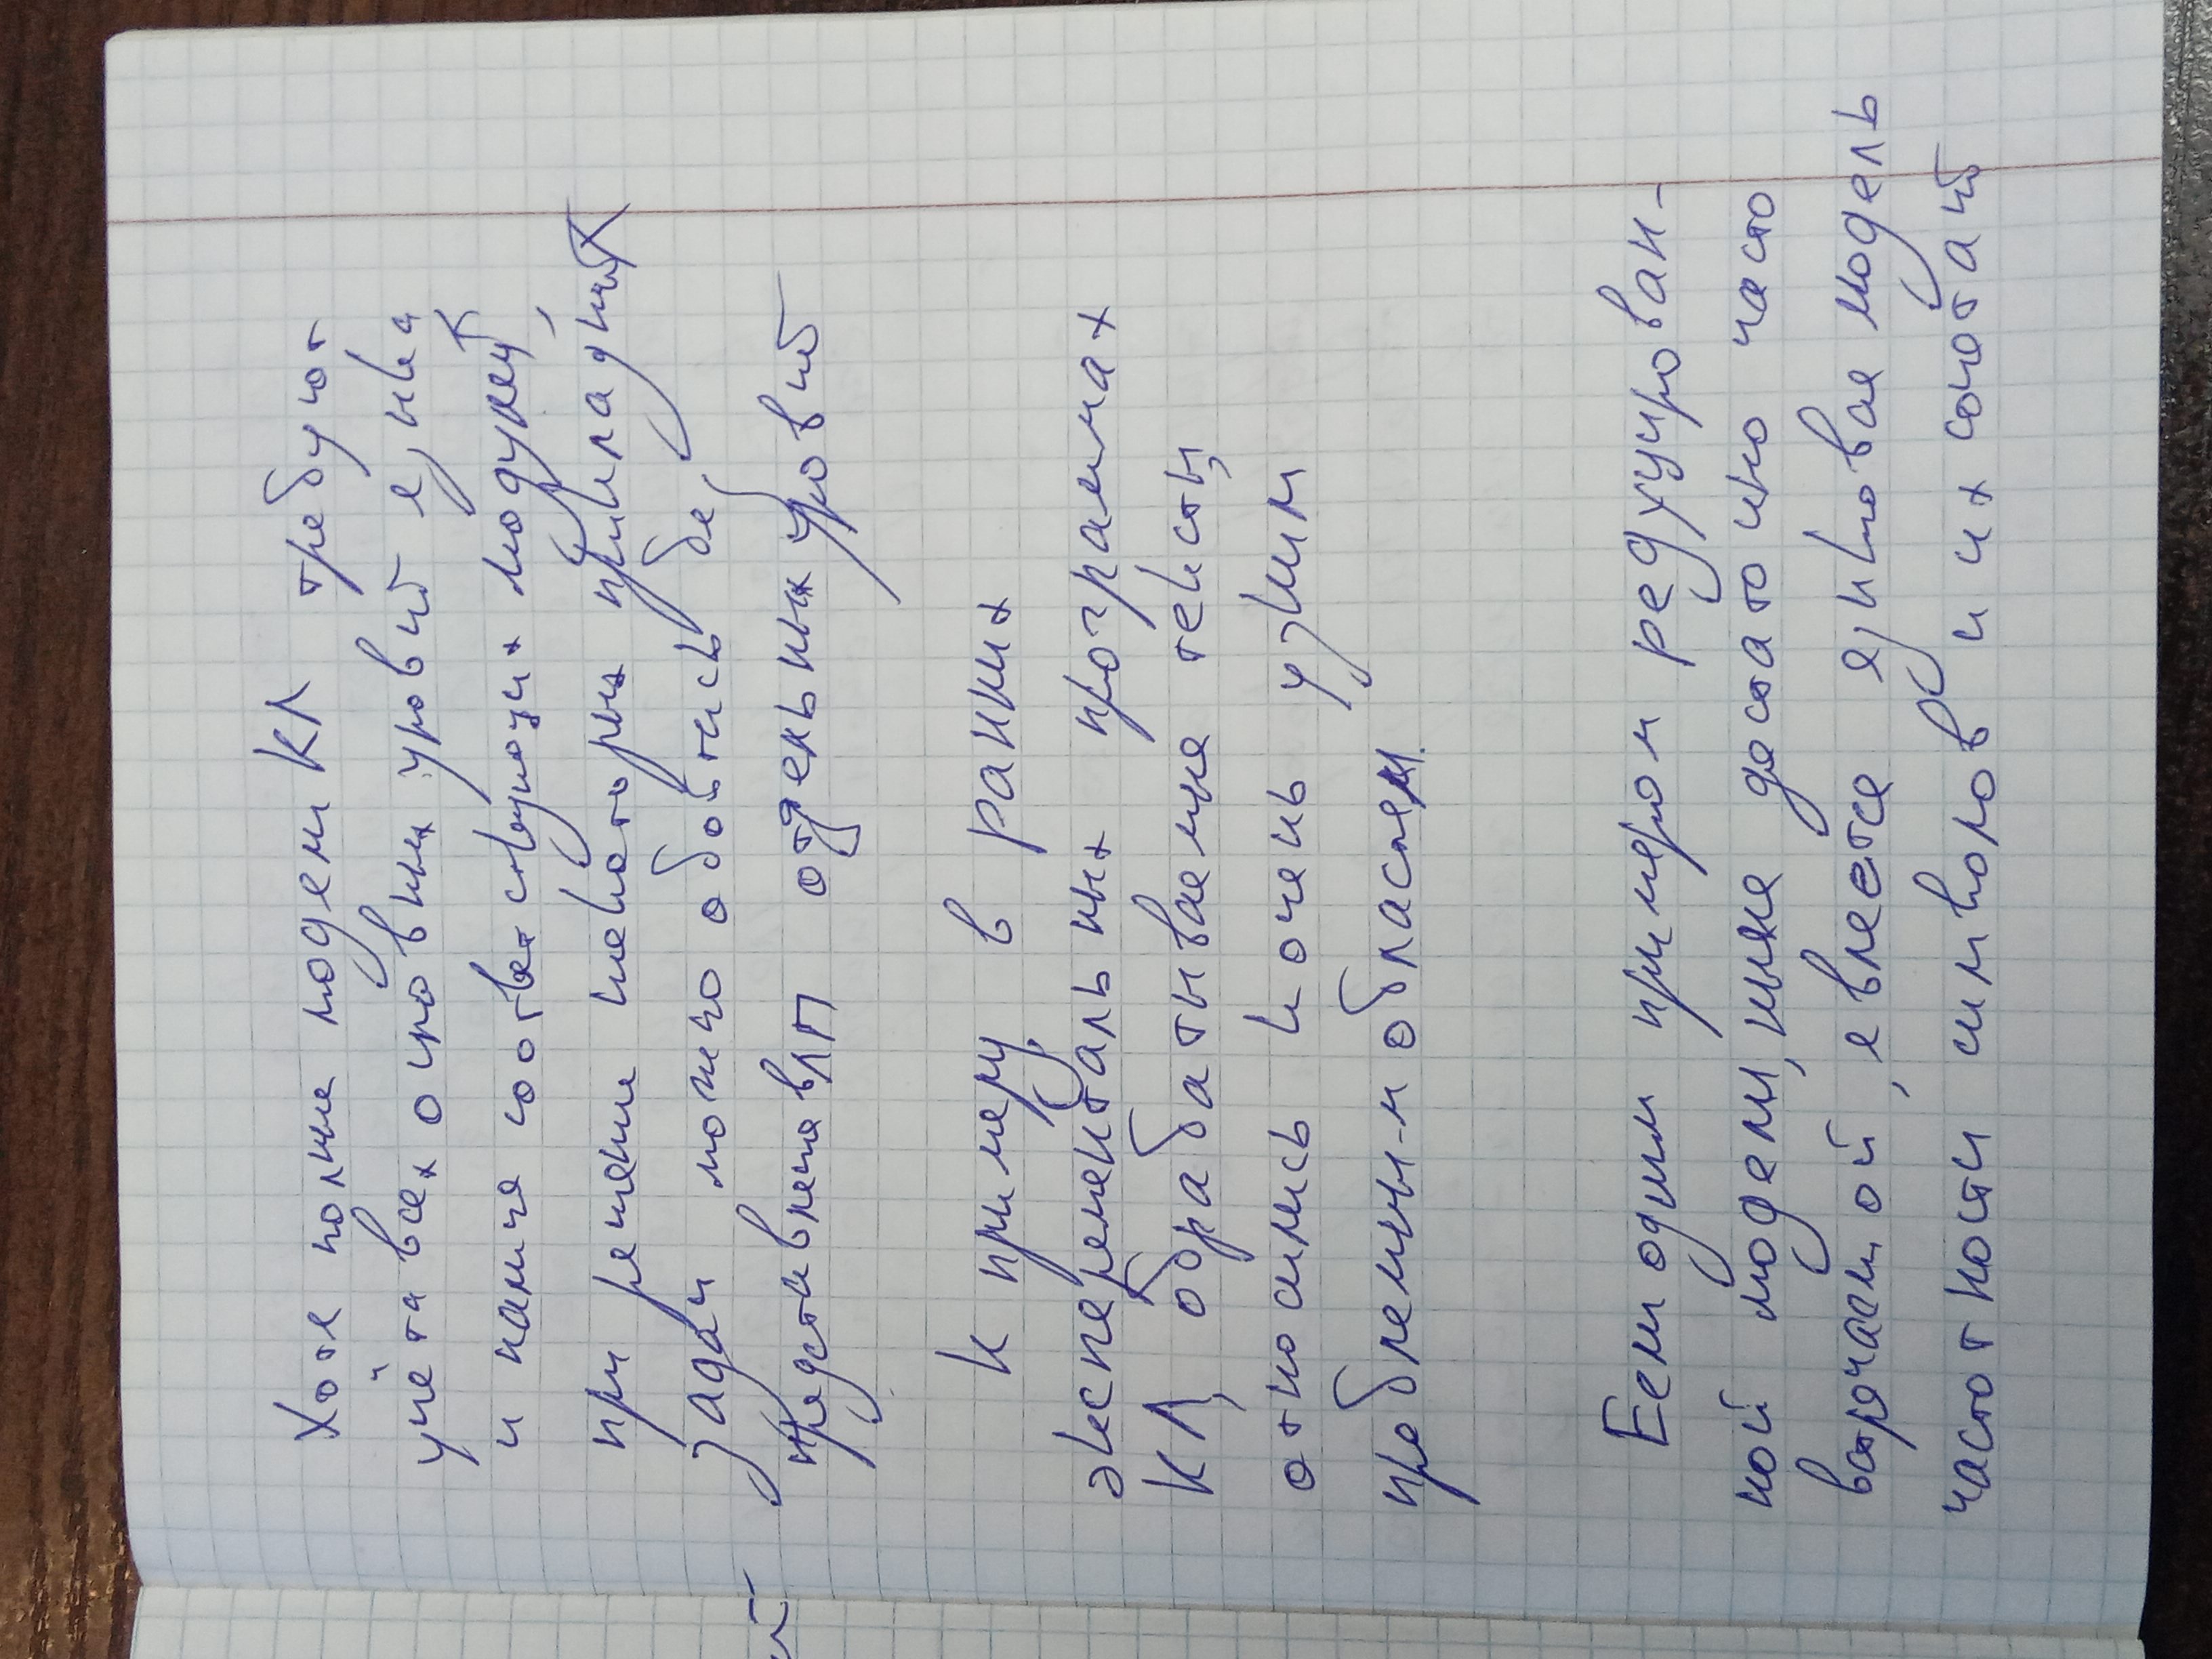 Хотя полные модели КЛ требуют
учёта всех основных уровней языка
и наличие соответствующих модулей,
при решение некоторых прикладных
задач можно обойтись без
представления в ЛП отдельных уровней
К примеру в ранних
эксперементальных программах
КЛ, обрабатываемые тексты,
относились к очень узким
проблемным областям.
Если одним примером редуцирован-
ной модели, ныне достаточно часто
встречаемой, является языковая модель
частотности символов и их сочетаний
й